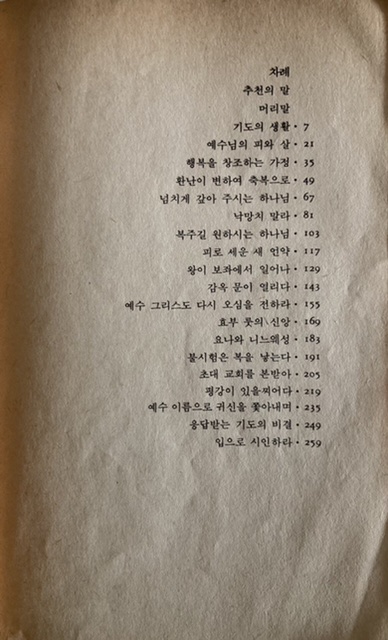 차례
추천의 말
머리말
기도의 생활 • 7
예수님의 피와 살 • 21
행복을 창조하는 가정 • 35
환난이 변하여 축복으로 • 49
넘치게 갚아 주시는 하나님 • 67
낙망치 말라 • 81
복주길 원하시는 하나님 • 103
피로 세운 새 언약 • 117
왕이 보좌에서 일어나 • 129
감옥 문이 열리다 • 143
예수 그리스도 다시 오심을 전하라 • 155
효부 룻의 신앙 • 169
요나와 니느웨성 • 183
불시험은 복을 낳는다 • 191
초대 교회를 본받아 • 205
평강이 있을찌어다 • 219
예수 이름으로 귀신을 쫓아내며 • 235
응답받는 기도의 비결 • 249
입으로 시인하라 • 259